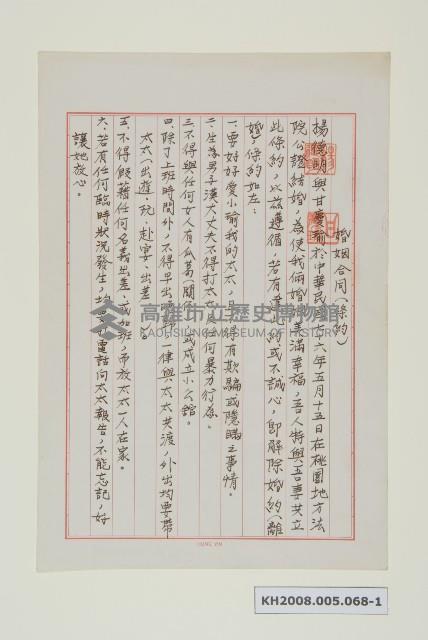 婚姻合同(條約)
楊德明與甘慶瑜於中華民國六六年五月十五日在桃園地方法
院公證結婚,為使我倆婚姻美滿幸福,吾人特與吾妻共立
此條約,以茲遵循,若有違約或不誠心,即解除婚約(離
婚),條約如左:
一.要好好愛小瑜我的太太,且不得有欺騙或隱瞞之事情。
二.生為男子漢大丈夫不得打太太或任何暴力行為。
三.不得與任何女人有瓜葛關係或成立小公館。
四.除了上班時間外,不得早出晚歸,一律與太太共渡,外出均要帶
太太(出遊、玩、赴宴、出差)
五.不得假藉任何名義出差、或加班,而放太太一人在家。
六.若有任何臨時狀況發生,均要電話向太太報告,不能忘記,好
讓她放心。
高雄市立歷史博物館
KAOHSIUNG MUSEUM OF HISTORY
KH2008.005.068-1